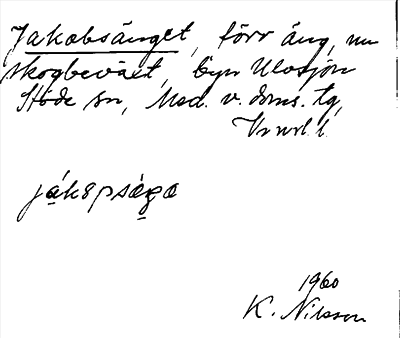 Jakobsänget, förr äng, nu
skogbeväxt, byn Ulvsjön
Stöde sn, Med. v. doms. tg,
Vn nrl. l.
jákopsäŋa
1960
K. Nilsson